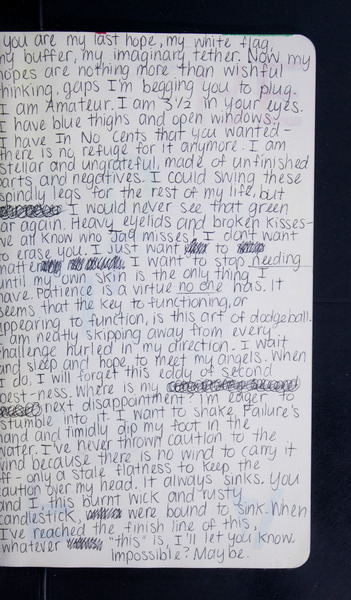 you are my last hope, my white flag,
my buffer, my imaginary tether. Now, my
hopes are nothing more than wishful
thinking, gaps I'm begging you to plug.
I am Amateur. I am 3 1/2 in your eyes.
I have blue thighs and open windows.
I have In No cents that you wanted -
there is no refuge for it anymore. I am
stellar and ungrateful, made of unfinished
parts and negatives. I could swing these
spindly legs for the rest of my life, but
I would never see that green
car again. Heavy eyelids and broken kisses -
we all know who Jag misses. I don't want
to erase you. I just want to
matter. I want to stop needing
until my own skin is the only thing I
have. Patience is a virtue no one has. It
seems that the key to functioning, or
appearing to function, is this art of dodgeball.
I am neatly skipping away from every
challenge hurled in my direction. I wait
and sleep and hope to meet my angels. When
I do, I will forget this eddy of second
best-ness. Where is my
next disappointment? I'm eager to
stumble into it. I want to shake Failure's
hand and timidly dip my foot in the
water. I've never thrown caution to the
wind because there is no wind to carry it
off - only a stale flatness to keep the
caution over my head. It always sinks. You
and I, this burnt wick and rusty
candlestick, were bound to sink. When
I've reached the finish line of this,
whatever "this" is, I'll let you know.
Impossible? Maybe.